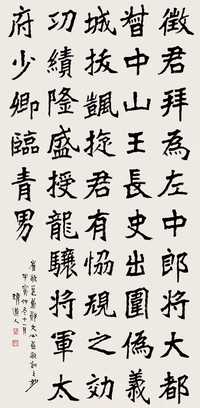 徵君拜為左中郎將大都
督中山王長史出圍偽義
城拔凱旋君有協規之効
功績隆盛授龍驤將軍太
府少卿臨青男
甲寅仲冬十一月